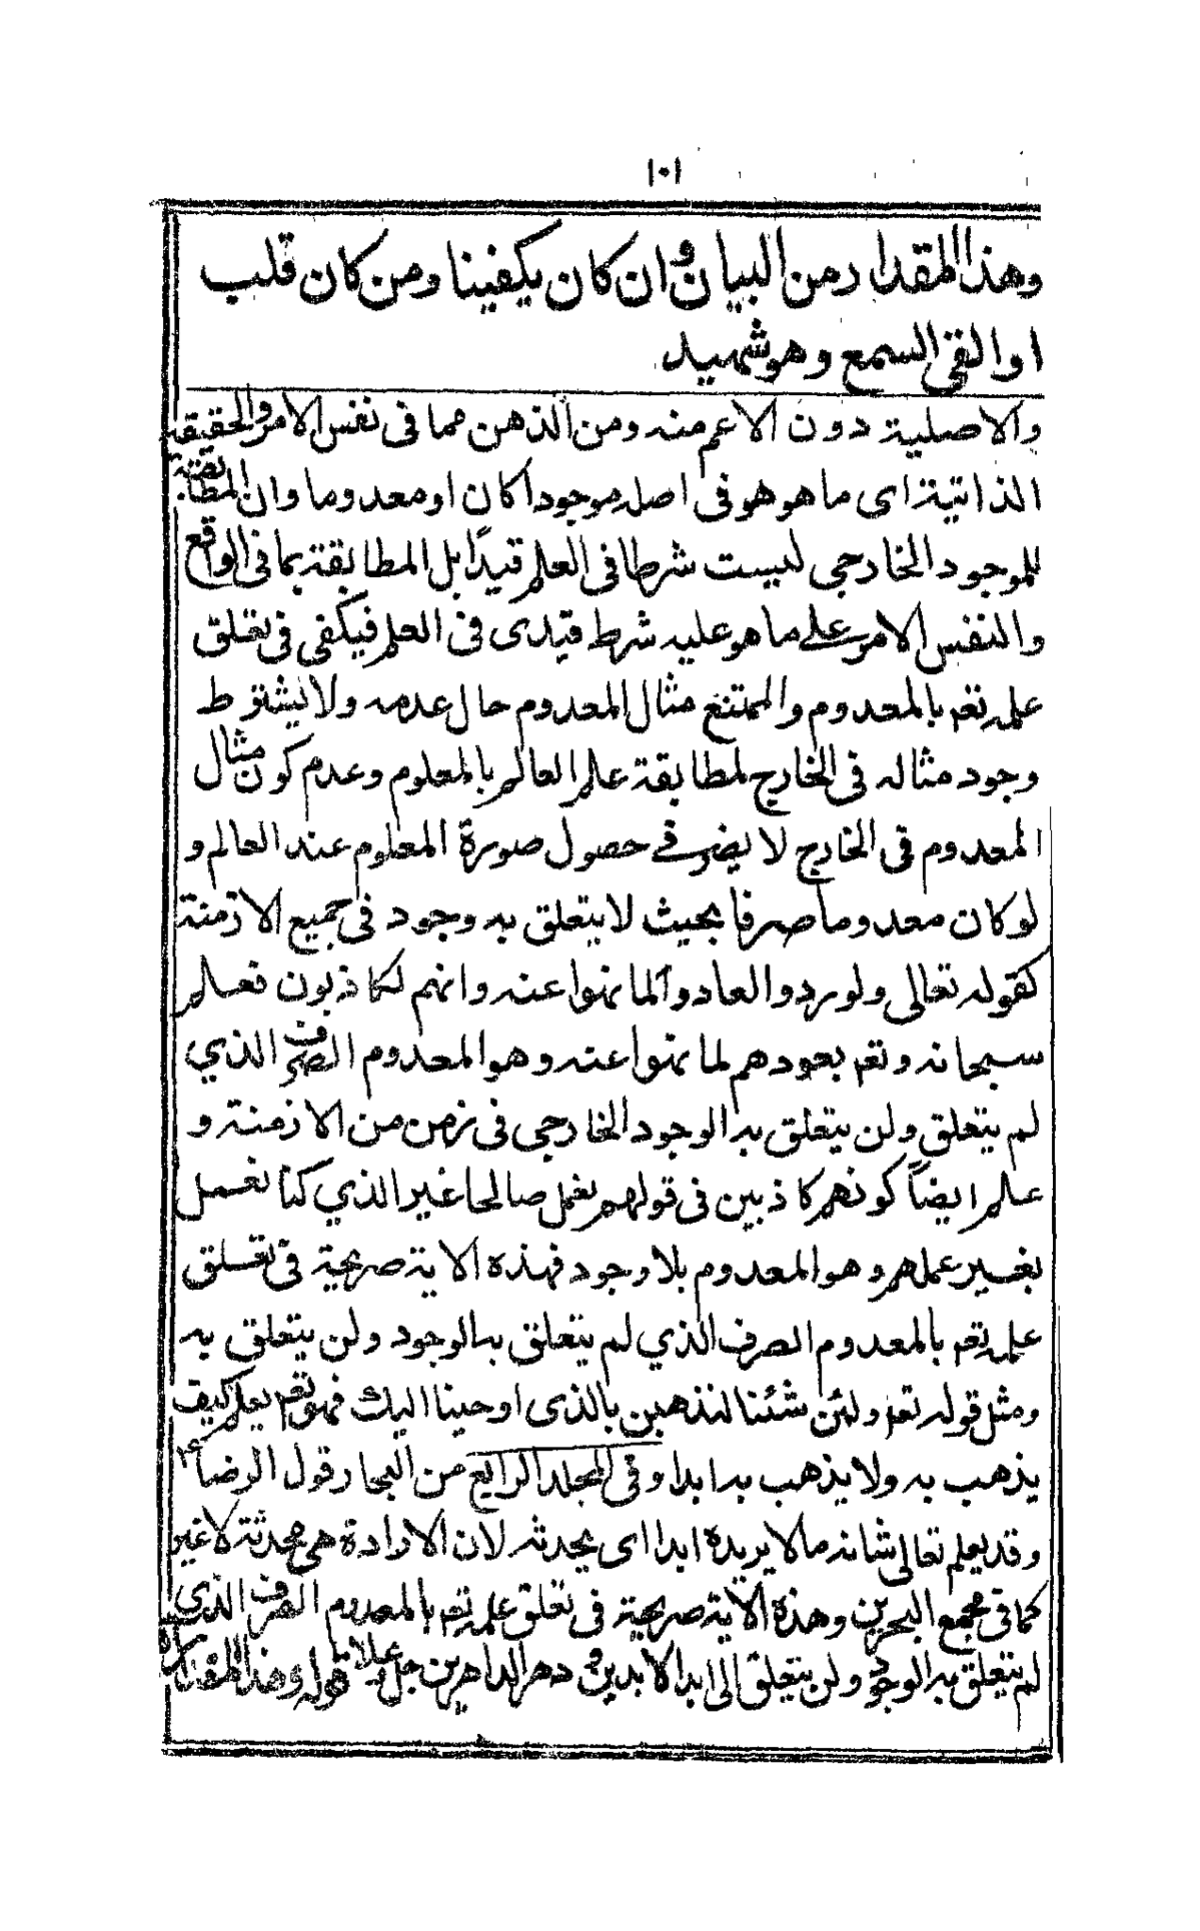 ١٠١
وهذا المقدار من البيان وان كان يكفينا ومن كان قلب
او القى السمع وهو شهيد
والاصلية دون الاعم منه ومن الذهن مما فى نفس الامر والحقيقية
الذاتية اى ما هو هو فى اصله موجودا كان او معدوما وان المطابقة
للموجود الخارجي ليست شرطا فى العلم قيدًا بل المطابقة بما فى الواقع
والنفس الامر على ما هو عليه شرط قيدى فى العلم فيكفى فى تعلق
علمه تعم بالمعدوم والممتنع مثال المعدوم حال عدمه ولا يشترط
وجود مثاله فى الخارج لمطابقة علم العالم بالمعلوم وعدم كون مثال
المعدوم فى الخارج لا يضر في حصول صورة المعلوم عند العالم و
لو كان معدوما صرفا بحيث لا يتعلق به وجود فى جميع الازمنة
كقوله تعالى ولو ردوا لعادوا لما نهوا عنه وانهم لكاذبون فعلم
سبحانه وتعم بعودهم لما نهوا عنه وهو المعدوم الصرف الذي
لم يتعلق ولن يتعلق به الوجود الخارجى فى زمن من الازمنة و
علم ايضاً كونهم كاذبين فى قولهم نعمل صالحا غير الذي كنا نعمل
بغير عملهم وهو المعدوم بلا وجود فهذه الاية صريحة فى تعلق
علمه تعم بالمعدوم الصرف الذي لم يتعلق به الوجود ولن يتعلق به
ومثل قوله تعم ولئن شئنا لنذهبن بالذى اوحينا اليك فهو تعم يعلم كيف
يذهب به ولا يذهب به ابدا وفى المجلد الرابع من البحار قول الرضا ع
وقد يعلم تعالى شانه ما لا يريده ابدا اى يحدثه لان الارادة هى محدثة لا غير
كما فى مجمع البحرين وهذه الاية صريحة فى تعلق علمه تعم بالمعدوم الصرف الذي
لم يتعلق به الوجود ولن يتعلق الى ابد الابدين و دهر الداهرين جل وعلا قوله وهذا المقدار